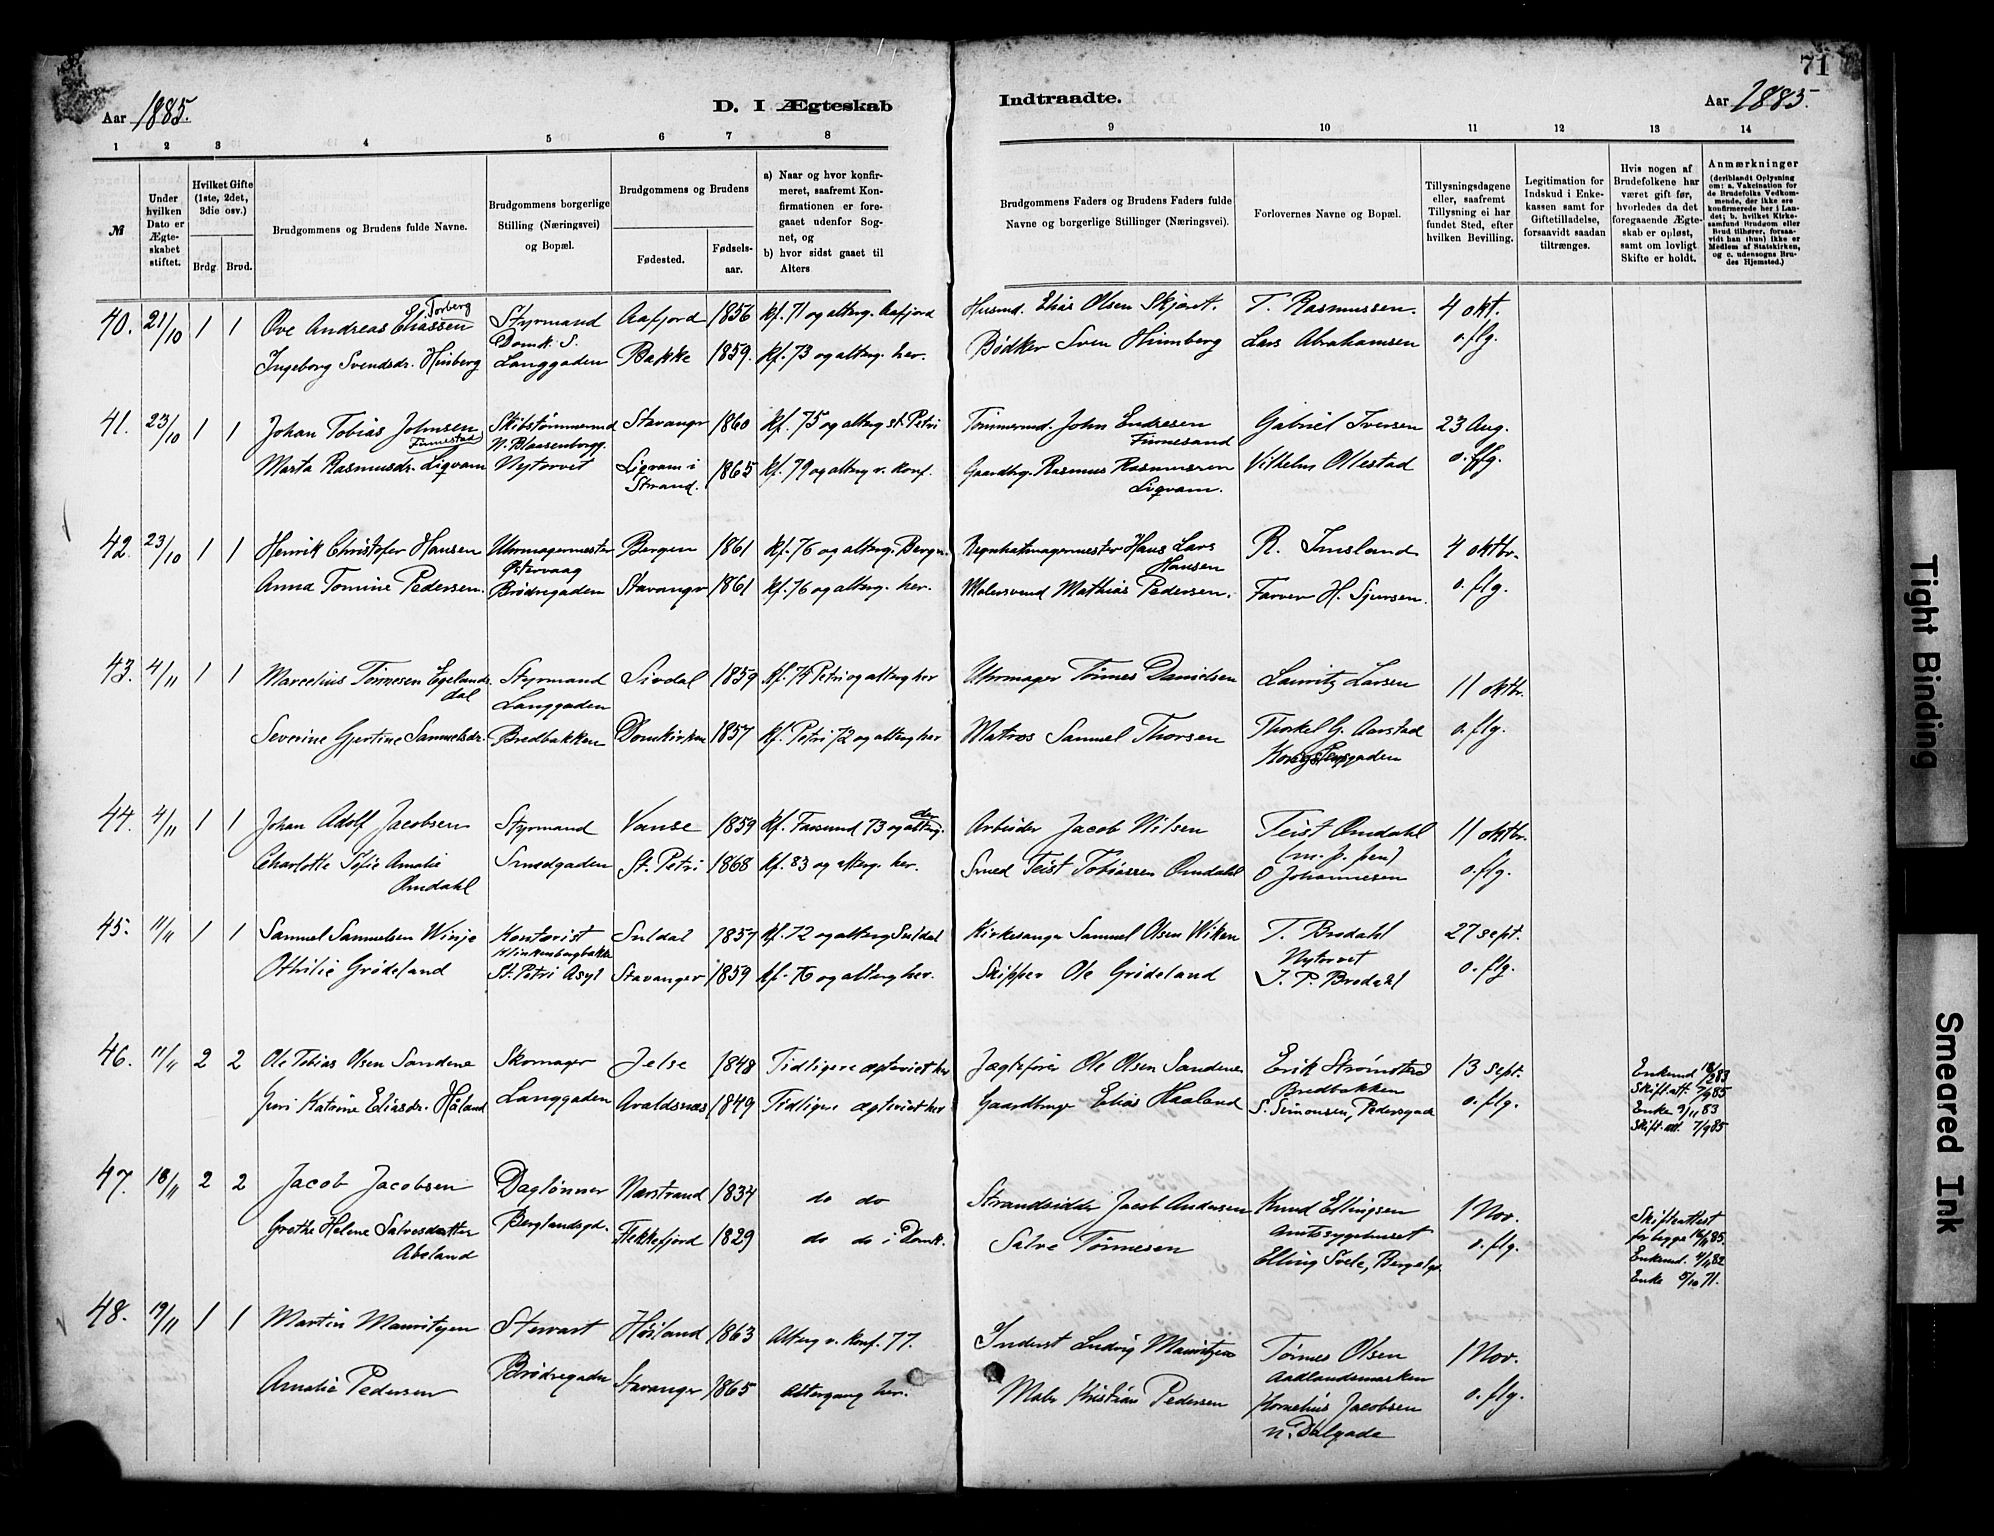 71
Aar 1885.
D. I Ægteskab Indtraadte.
Aar 1885.
1 2 3 4 5 6 7 8 9 10 11 12 13 14
№
Under hvilken Dato er Ægteskabet stiftet.
Hvilket Gifte (1ste, 2det, 3die osv.)
Brdg. Brud.
Brudgommens og Brudens fulde Navne.
Brudgommens borgerlige Stilling (Næringsvei) og Bopæl.
Brudgommens og Brudens
Fødested. Fødselsaar.
a) Naar og hvor konfirmeret, saafremt Konfirmationen er foregaaet udenfor Sognet, og
b) hvor sidst gaaet til Alters
Brudgommens Faders og Brudens Faders fulde Navne og borgerlige Stillinger (Næringsvei).
Forlovernes Navne og Bopæl.
Tillysningsdagene eller, saafremt Tillysning ei har fundet Sted, efter hvilken Bevilling.
Legitimation for Indskud i Enkekassen samt for Giftetilladelse, forsaavidt saadan tiltrænges.
Hvis nogen af Brudefolkene har været gift før, hvorledes da det foregaaende Ægteskab er opløst, samt om lovligt Skifte er holdt.
Anmærkninger (deriblandt Oplysning om: a. Vakcination for de Brudefolks Vedkommende, der ikke ere konfirmerede her i Landet; b. hvilket Kirkesamfund Brudgom eller Brud tilhører, forsaavidt han (hun) ikke er Medlem af Statskirken, og c. udensogns Brudes Hjemsted.)
40. 21/10 1 1 Ove Andreas Eliassen Torberg Styrmand Aafjord 1856 kf. 71 og alterg. Aafjord Husmd. Elias Olsen Skjøret. T. Rasmussen. 4 okt.
Domk. S.
Ingeborg Svendsdr. Hinberg Langgaden Bakke 1859. kf. 73 og alterg. her. Bødker Sven Himberg Lars Abrahamsen o. flg.
41. 23/10 1 1 Johan Tobias Johnsen Skibstømmermd Stavanger 1860 kf. 75 og alterg. St. Petri Tømmermd. John Endresen Gabriel Iversen 23 Aug.
Finnestad N. Blaasenborgg. Finnesand
Marta Rasmusdr. Liqvam Nytorvet Liqvam i 1865 kf. 79 og alterg. v. konf. Gaardbrg. Rasmus Rasmussen Vilhelm Ollestad o. flg.
Strand. Liqvam.
42. 23/10 1 1 Henrik Christofer Hansen Uhrmagermester Bergen 1861 kf. 76 og alterg. Bergen Rebslagermester Hans Lars R. Imsland 4 oktbr.
Østervaag Hansen
Anna Tomine Pedersen. Brødregaden Stavanger 1861 kf. 76 og alterg. her. Malersvend Mathias Pedersen. Farver H. Sjursen. o. flg.
43. 4/11 1 1 Marcelius Tønnesen Egelands- Styrmand Sirdal 1859 kf. 74 Petri og alterg her Uhrmager Tønnes Danielsen Lauritz Larsen 11 oktbr.
dal Langgaden
Severine Gjertine Samuelsdr. Bredbakken Domkirken 1857 kf. Petri 72 og alterg her Matros Samuel Thorsen Thorkel G. Aarstad o. flg.
Kongstensgaden
44. 4/11 1 1 Johan Adolf Jacobsen Styrmand Vanse 1859 kf. Farsund 73 og alterg. der Arbeider Jacob Nilsen Teist Omdahl 11 oktbr.
(m. p. pen)
Charlotte Sofie Amalie Smedgaden St. Petri 1868 kf. 83 og alterg. her. Smed Teist Tobiassen Omdahl O Johannesen o. flg.
Omdahl
45. 11/11 1 1 Samuel Samuelsen Winje Kontorist Suldal 1857 kf. 72 og alterg Suldal Kirkesanger Samuel Olsen Wiken T. Brodahl 27 sept.
Klinkenbergbakken Nytorvet
Othilie Grødeland St. Petri Asyl Stavanger 1859 kf. 76 og alterg her. Skipper Ole Grødeland J. P. Brodahl o. flg.
46. 11/11 2 2 Ole Tobias Olsen Sandene Skomager Jelse 1848 Tidligere ægteviet her Jagtefører Ole Olsen Sandenes Erik Strømstad 13 sept. Enkemd 18/2 83
Bredbakken Skift.att. 7/9 85
Guri Katrine Eliasdr. Håland Langgaden Avaldsnæs 1849 Tidligere ægteviet her Gaardbruger Elias Haaland S. Simonsen, Pedersgade o. flg. Enke 9/11 83
Skift. att. 7/9 85
47. 18/11 2 2 Jacob Jacobsen Daglønner Nærstrand 1834 do do Strandsidder Jacob Andersen Knud Ellingsen 1 Nov. Skifteattest
Amtssygehuset for begge 16/11 85.
Grethe Helene Salvesdatter Berglandsgd. Flekkefjord 1829 do do i Domk. Salve Tønnesen Elling Svele, Bergelgd. o. flg. Enkemd. 4/11 82
Abeland Enke 5/10 71.
48. 19/11 1 1 Martin Mauritzen Stewart Høiland 1863 Alterg v. konf. 77. Inderst Ludvig Mauritzen Tønnes Olsen 1 Nov.
Aadlandsmarken
Amalie Pedersen Brødregaden Stavanger 1865 Altergang her. Maler Kristian Pedersen Kornelius Jacobsen o. flg.
n. Dalgade
Tight Binding
Smeared Ink